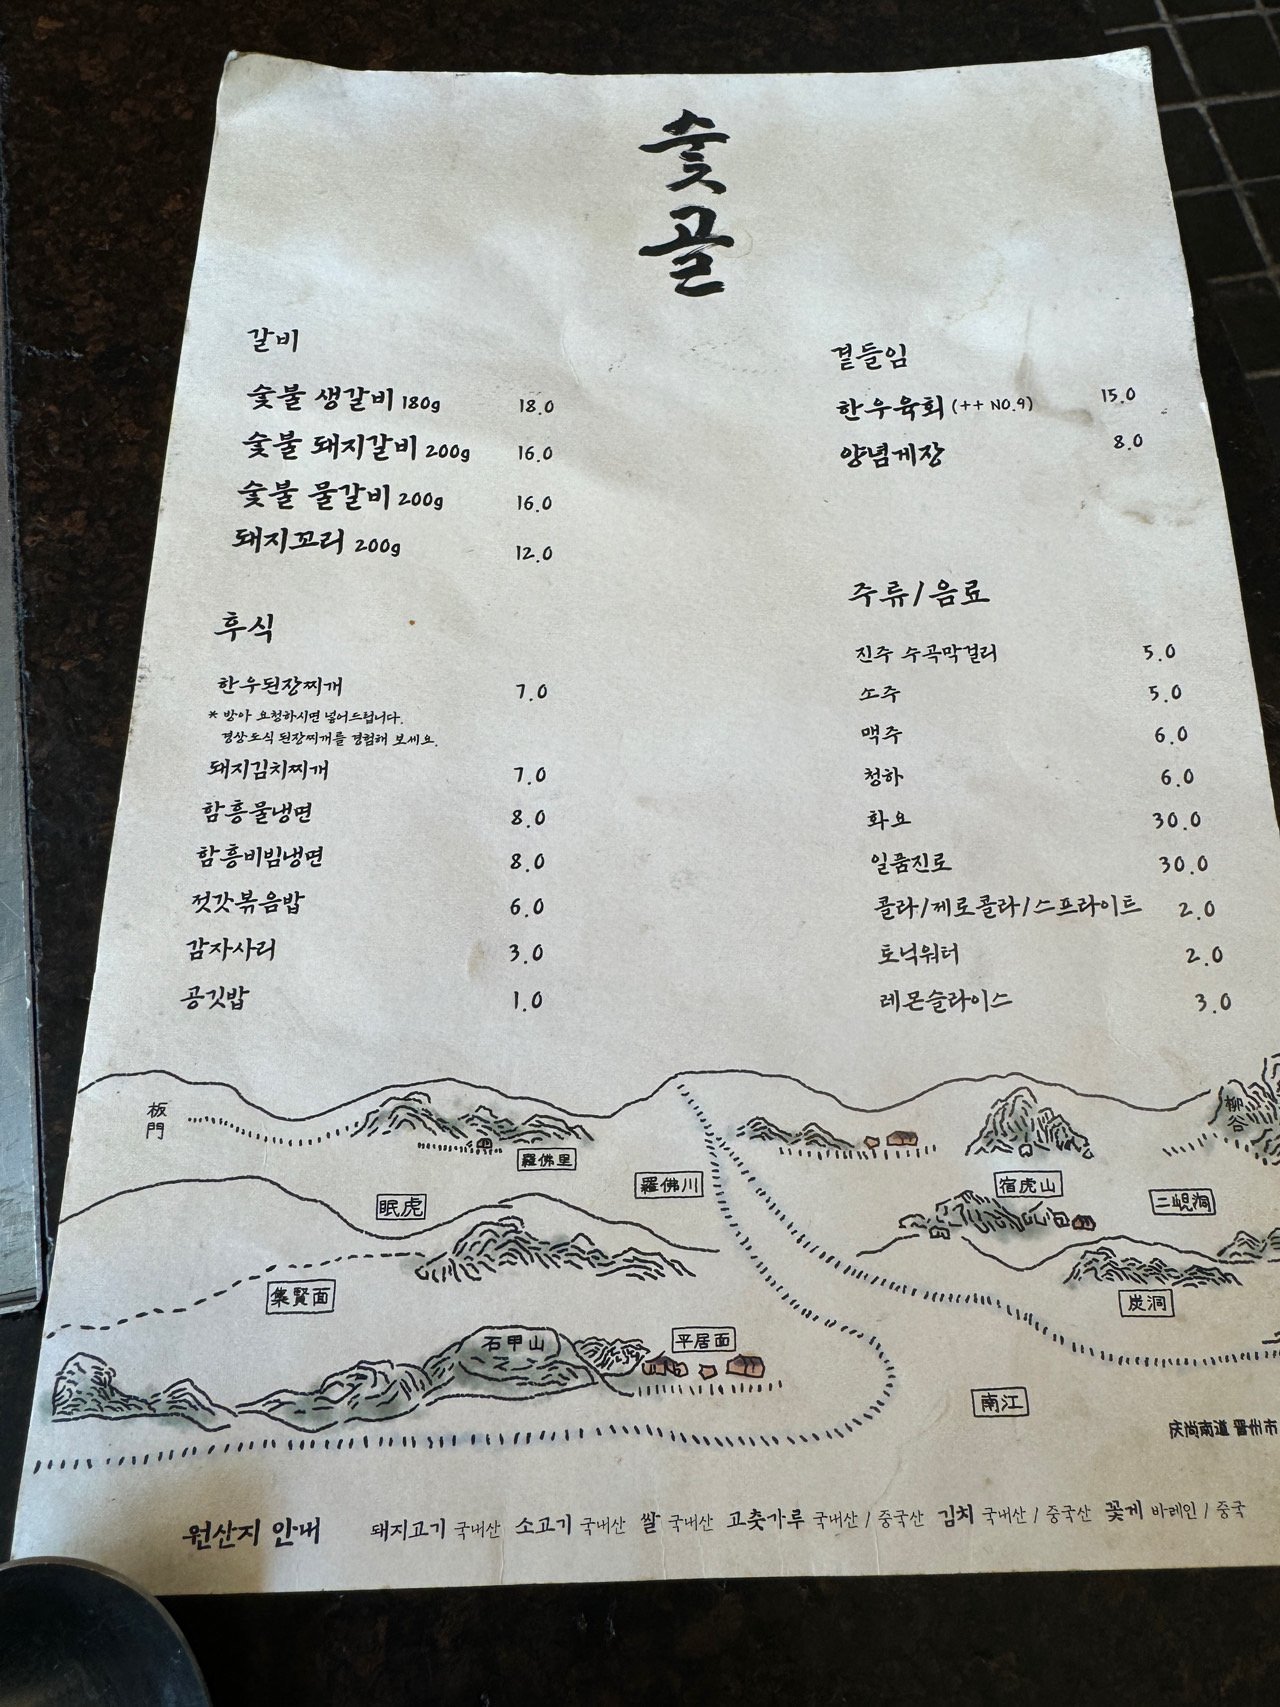 숯골
갈비
숯불 생갈비 180g 18.0
숯불 돼지갈비 200g 16.0
숯불 물갈비 200g 16.0
돼지꼬리 200g 12.0
후식
한우된장찌개 7.0
* 방아 요청하시면 넣어드립니다.
경상도식 된장찌개를 경험해 보세요.
돼지김치찌개 7.0
함흥물냉면 8.0
함흥비빔냉면 8.0
젓갓볶음밥 6.0
감자사리 3.0
공깃밥 1.0
곁들임
한우육회 (++ NO.9) 15.0
양념게장 8.0
주류/음료
진주 수곡막걸리 5.0
소주 5.0
맥주 6.0
청하 6.0
화요 30.0
일품진로 30.0
콜라/제로콜라/스프라이트 2.0
토닉워터 2.0
레몬슬라이스 3.0
板門
羅佛里
羅佛川
宿虎山
柳谷
眠虎
二峴洞
集賢面
炭洞
石甲山
平居面
南江
慶尙南道 晋州市
원산지 안내 돼지고기 국내산 소고기 국내산 쌀 국내산 고춧가루 국내산 / 중국산 김치 국내산 / 중국산 꽃게 바레인 / 중국